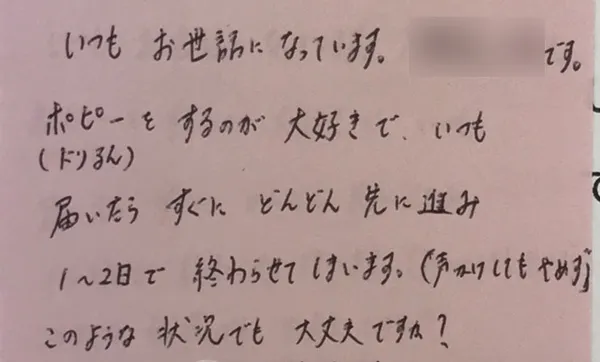 いつも お世話になっています。 です。
ポピーを するのが 大好きで、いつも
(ドリるん)
届いたら すぐに どんどん 先に進み
1〜2日で 終わらせてしまいます。(声かけしてもやめず)
このような 状況でも 大丈夫ですか?